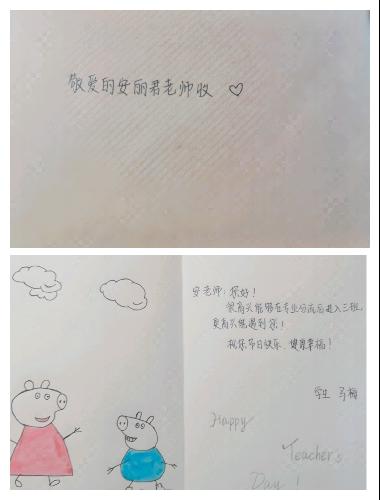 敬爱的安丽君老师收♡
安老师：您好！
很高兴能够在专业分流后进入三班，
更高兴能遇到您！
祝您节日快乐、健康幸福！
学生 马梅
Happy
Teacher's
Day！